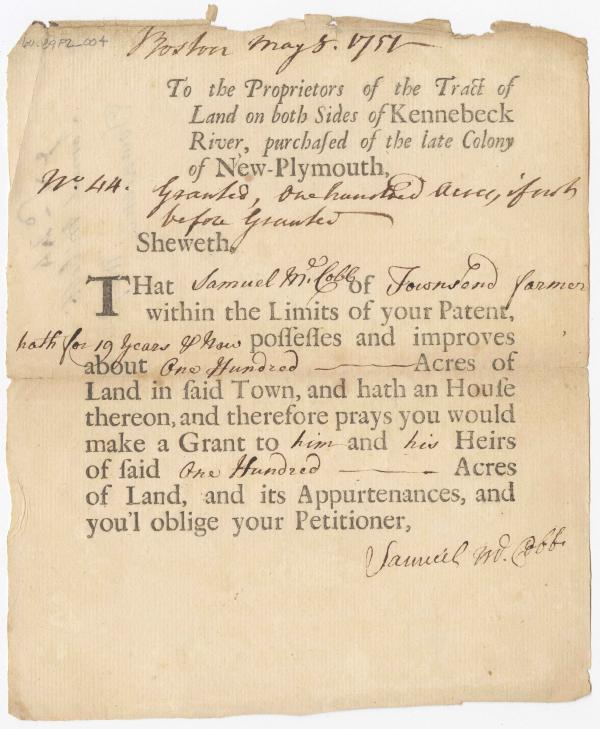 Boston May 8. 1751
To the Proprietors of the Tract of
Land on both Sides of Kennebeck
River, purchaſed of the late Colony
of New-Plymouth,
No. 44. Granted, One hundred Acres, if not
before Granted
Sheweth,
THat Samuel Md. Cobb of Townsend farmer
within the Limits of your Patent,
hath for 19 Years & Now poſſeſſes and improves
about One Hundred Acres of
Land in ſaid Town, and hath an Houſe
thereon, and therefore prays you would
make a Grant to him and his Heirs
of ſaid One Hundred Acres
of Land, and its Appurtenances, and
you'l oblige your Petitioner,
Samuel Md. Cobb